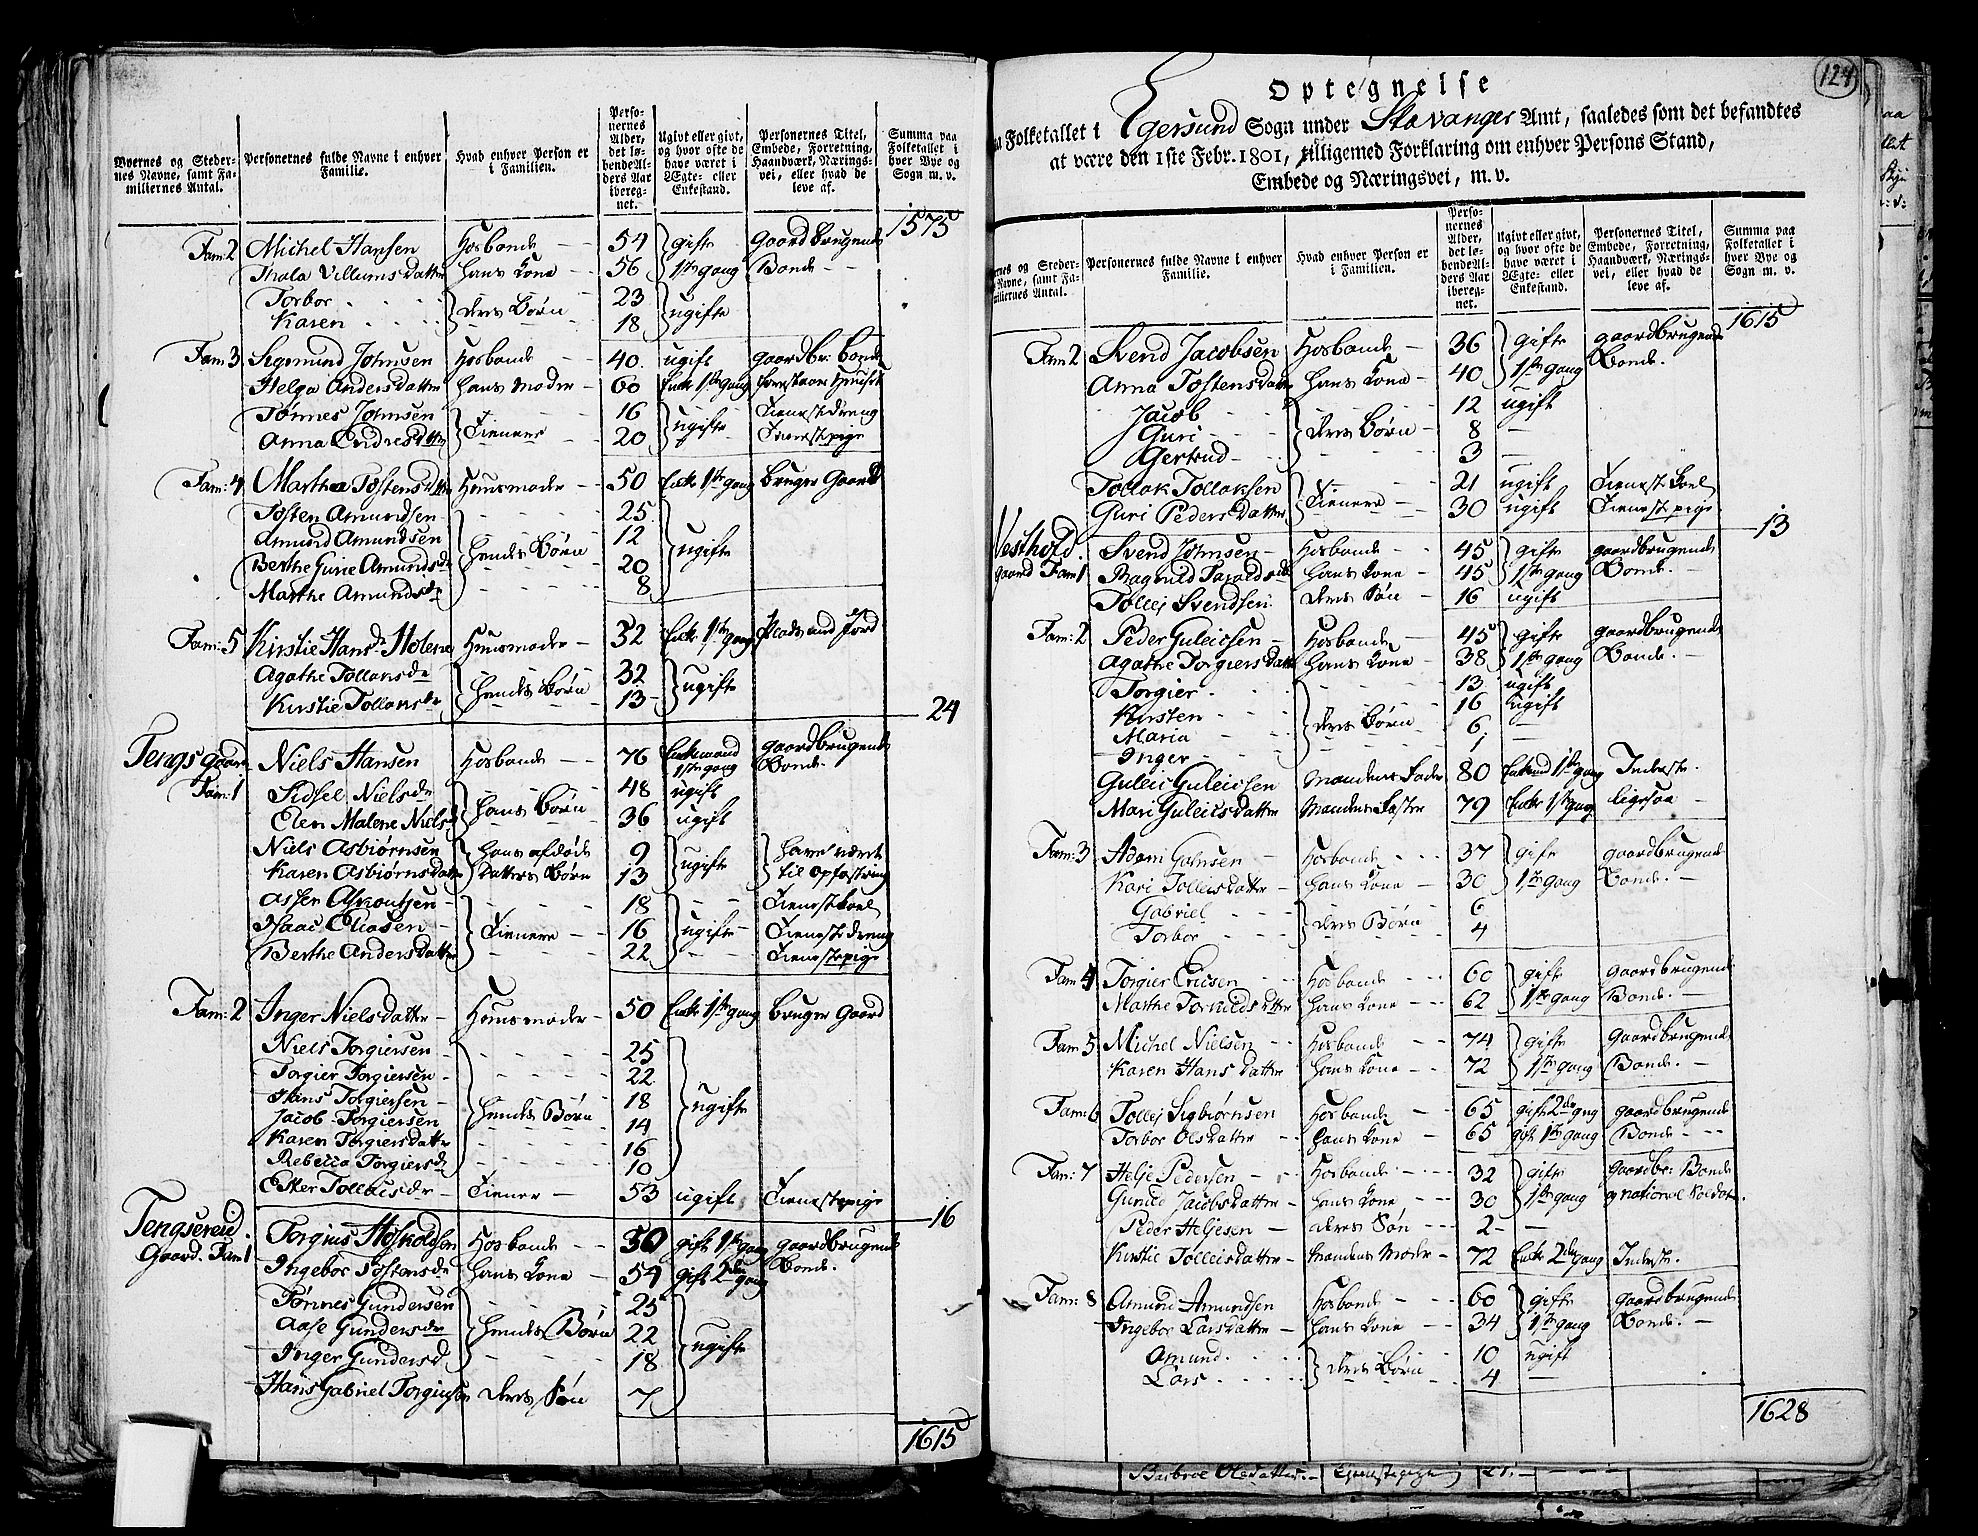 Byernes og Steder- nes Navne, samt Fa- miliernes Antal. Personernes fulde Navne i enhver Familie. Hvad enhver Person er i Familien. Perso- nernes Alder, det lø- bende Al- ders Aar ibereg- net. Ugivt eller givt, og hvor ofte de have været i Ægte- eller Enkestand. Personernes Titel, Embede, Forretning, Haandværk, Nærings- vei, eller hvad de leve af. Summa paa Folketallet i hver Bye og Sogn m. v.
1575
Fam: 2 Michel Hansen Hosbonde 54 gifte Gaordbrugende
Thala Villumsdatter Hans Kone 56 1ste gang Bonde
Torbor 23
Karen deres Børn 18 ugifte
Fam: 3 Sigmund Johnsen Hosbonde 40 ugift gaordbr: bonde
Helga Andersdatter Hans Moder 60 Enke 1ste gang
Tønnes Johnsen 16 Tienestedreng
Anna Endresdttr Tienere 20 ugifte Tienestepige
Fam: 4 Martha Tostensdttr Huusmoder 50 Enke 1ste gang bruger Gaord
Tosten Amundsen 25
Amund Amundsen 12
Berthe Gurie Amundsdr Hendes Børn 20 ugifte
Marthe Amundsdr 8
Fam: 5 Kirstie Hansdr Holene Huusmoder 32 Enke 1ste gang Plads uden Jord
Agathe Tollansdr 32
Kirstie Tollansdr Hendes Børn 13 ugifte
24
Tengs gaard Niels Hansen Hosbonde 76 Enkemand 1ste gang gaordbrugende Bonde.
Fam: 1 Sidsel Nielsdr 48 ugift
Elen Malene Nielsdr Hans Børn 36 ugift
Niels Asbiørnsen Hans afdøde 9 have været
Karen Asbiørnsdatter Datters Børn 13 ugifte til opfostring
18 Tienestekarl
Isaac Eliasen Tienere 16 ugifte Tienestedreng
Berthe Andersdatter 22 Tienestepige
Fam: 2 Inger Nielsdatter Huusmoder 50 Enke 1ste gang bruger Gaord
Niels Torgiersen 25
Torgier Torgiersen 22
Hans Torgiersen 18
Jacob Torgiersen Hendes Børn 14 ugifte
Karen Torgiersdatter 16
Rebecca Torgiersdr 10
Ester Tolleisdr Tiener 53 ugift Tienestepige
16
Tengsereid. Torgius Hoskoldsen Hosbonde 50 gift 1ste gang gaordbrugende
Gaard. Fam 1 Ingebor Tostensdr Hans Kone 54 gift 2den gang Bonde.
Tønnes Gundersen 25
Aase Gundersdr Hendes Børn 22
Inger Gundersd 18 ugifte
Hans Gabriel Torgiusen deres Søn 7
1615
124
Optegnelse
paa Folketallet i Egersund Sogn under Stavanger Amt, saaledes som det befandtes
at være den 1ste Febr. 1801, tilligemed Forklaring om enhver Persons Stand,
Embede og Næringsvei, m. v.
nes og Steder- Navne, samt Fa- miliernes Antal. Personernes fulde Navne i enhver Familie. Hvad enhver Person er i Familien. Perso- nernes Alder, det lø- bende Al- ders Aar ibereg- net. Ugivt eller givt, og hvor ofte de have været i Ægte- eller Enkestand. Personernes Titel, Embede, Forretning, Haandværk, Nærings- vei, eller hvad de leve af. Summa paa Folketallet i hver Bye og Sogn m. v.
1615
Fam: 2 Svend Jacobsen Hosbonde 36 gifte gaordbrugende
Anna Tostensdatter Hans Kone 40 1ste gang Bonde.
Jacob 12 ugift
Guri deres Børn 8
Gertrud 3
Tollak Tollaksen 21 ugift Tienestekarl
Guri Pedersdatter Tienere 30 ugift Tienestepige
13
Vesthold. Svend Johnsen Hosbonde 45 gifte gaordbrugende
gaard Fam 1 Ragnild Taraldsdr Hans Kone 45 1ste gang Bonde.
Tollej Svendsen deres Søn 16 ugift
Fam: 2 Peder Guleicsen Hosbonde 45 gifte gaordbrugende
Agathe Torgiersdatter Hans Kone 38 1ste gang Bonde.
Torgier 13 ugift
Kirsten 16 ugift
Maria deres Børn 6
Inger 1
Guleic Guleicsen Mandens Fader 80 Enkemd 1ste gang Inderste.
Mari Guleicsdatter Mandens Søster 79 Enke 1ste gang ligesaa
Fam: 3 Adam Hosbonde 37 gift gaordbrugende
Kari Tolleisdatter Hans Kone 30 1ste gang Bonde.
Gabriel 6
Torbor deres Børn 4
Fam 4 Torgier Ericsen Hosbonde 60 gifte gaordbrugende
Marthe Hans Kone 62 1ste gang Bonde.
Fam: 5 Michel Nielsen Hosbonde 74 gifte Gaordbrugende
Karen Hansdatter Hans Kone 72 1ste gang Bonde.
Fam: 6 Tollej Sigbiørnsen Hosbonde 65 gift 2de gang gaordbrugende
Torbor Olsdatter Hans Kone 65 gift 1ste gang Bonde
Fam: 7 Helje Pedersen Hosbonde 32 gifte Gaordbr: Bonde
Gunild Jacobsdatter Hans Kone 30 1ste gang og national Soldat.
Peder Heljesen deres Søn 2
Kirstie Tolleisdatter Mandens Moder 72 Enke 2de gang Inderste.
Fam: 8 Amund Amundsen Hosbonde 60 gifte gaordbrugende
Ingebor Larsdatter Hans Kone 34 1ste gang Bonde.
Amund. 10 ugift
Lars deres Børn 4
1628
Olsdatter Tienestepige 21.